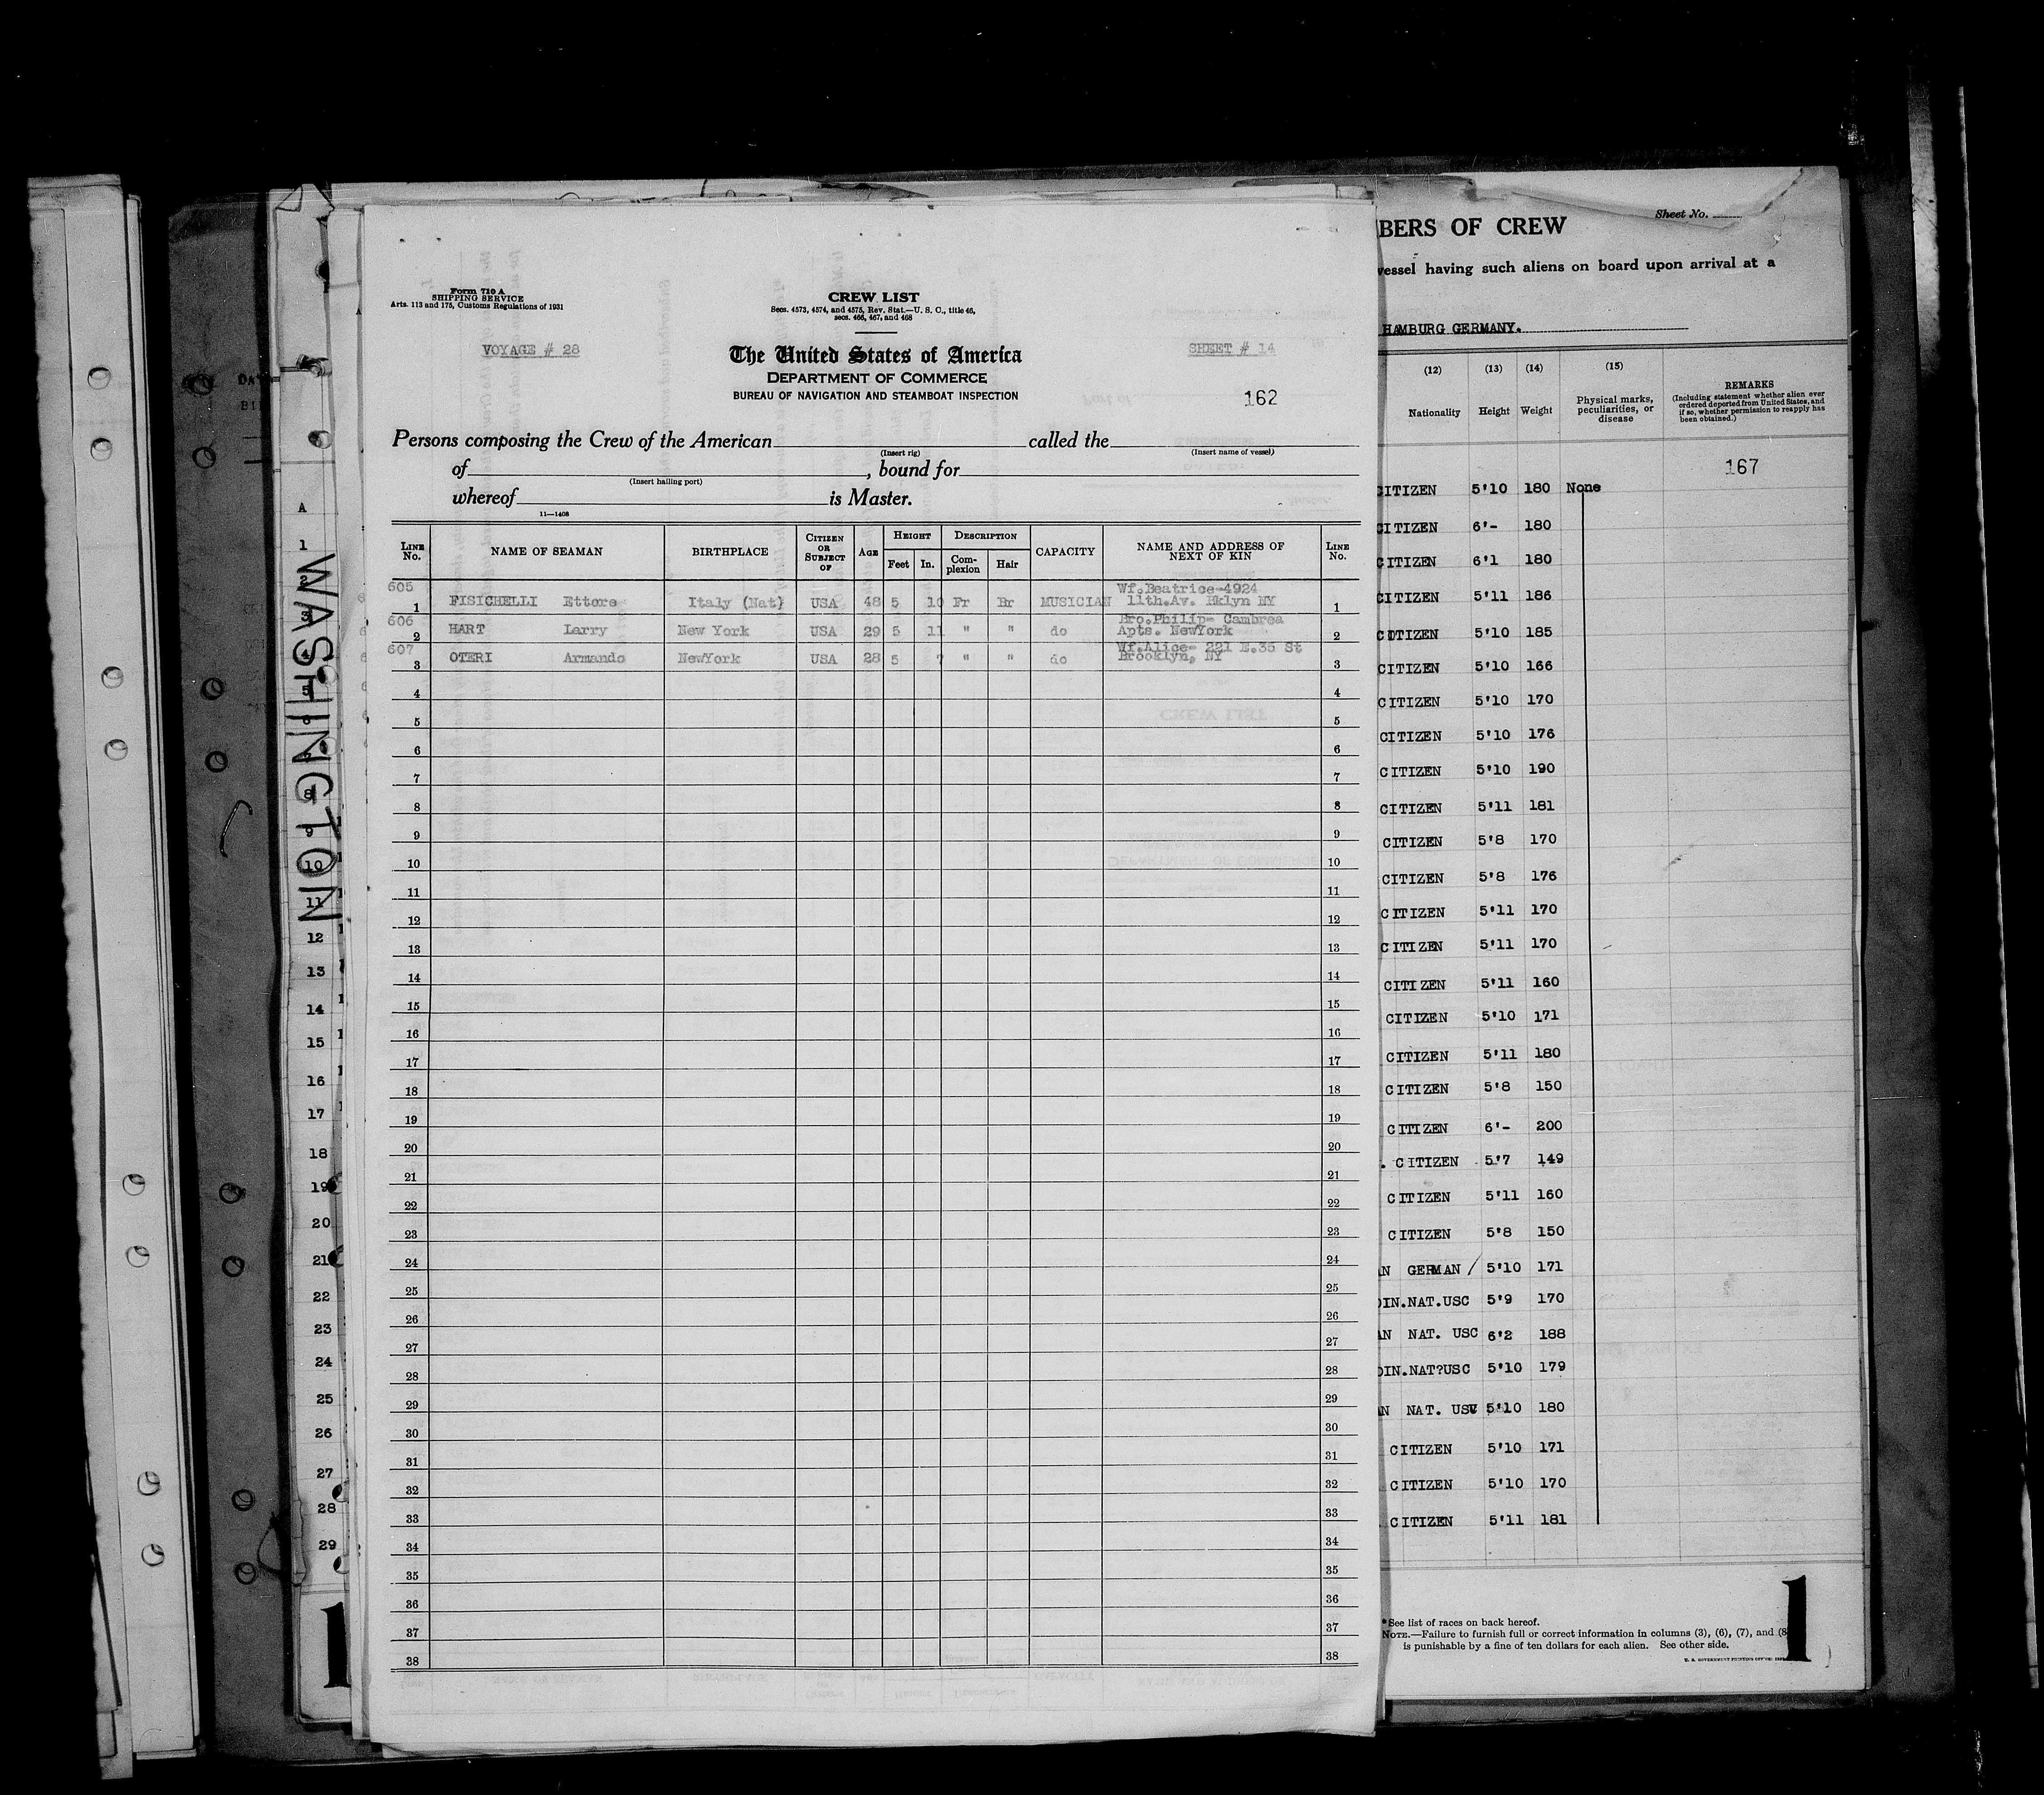 Form 710 A
SHIPPING SERVICE
Arts. 113 and 175, Customs Regulations of 1931
CREW LIST
Secs. 4573, 4574, and 4575, Rev. Stat.—U. S. C., title 46,
secs. 466, 467, and 468
VOYAGE # 28
The United States of America
SHEET # 14
DEPARTMENT OF COMMERCE
BUREAU OF NAVIGATION AND STEAMBOAT INSPECTION
162
Persons composing the Crew of the American called the
(Insert rig) (Insert name of vessel)
of , bound for
(Insert hailing port)
whereof is Master.
11—1408
LINE No. NAME OF SEAMAN BIRTHPLACE CITIZEN OR SUBJECT OF AGE HEIGHT Feet In. DESCRIPTION Complexion Hair CAPACITY NAME AND ADDRESS OF NEXT OF KIN LINE No.
605 Wf.Beatrice-4924
1 FISICHELLI Ettore Italy (Nat) USA 48 5 10 Fr Br MUSICIAN 11th.Av. Bklyn NY 1
606 Bro.Philip- Cambrea
2 HART Larry New York USA 29 5 11 " " do Apts. NewYork 2
607 Wf.Alice- 221 E.35 St
3 OTERI Armando NewYork USA 28 5 7 " " do Brooklyn, NY 3
4 4
5 5
6 6
7 7
8 8
9 9
10 10
11 11
12 12
13 13
14 14
15 15
16 16
17 17
18 18
19 19
20 20
21 21
22 22
23 23
24 24
25 25
26 26
27 27
28 28
29 29
30 30
31 31
32 32
33 33
34 34
35 35
36 36
37 37
38 38
WASHINGTON
A
1
2
3
4
5
6
7
8
9
10
11
12
13
14
15
16
17
18
19
20
21
22
23
24
25
26
27
28
29
1
Sheet No.
BERS OF CREW
vessel having such aliens on board upon arrival at a
HAMBURG GERMANY.
(12) (13) (14) (15)
Nationality Height Weight Physical marks, peculiarities, or disease
REMARKS
(Including statement whether alien ever
ordered deported from United States, and
if so, whether permission to reapply has
been obtained.)
167
CITIZEN 5'10 180 None
CITIZEN 6'- 180
CITIZEN 6'1 180
CITIZEN 5'11 186
CITIZEN 5'10 185
CITIZEN 5'10 166
CITIZEN 5'10 170
CITIZEN 5'10 176
CITIZEN 5'10 190
CITIZEN 5'11 181
CITIZEN 5'8 170
CITIZEN 5'8 176
CITIZEN 5'11 170
CITIZEN 5'11 170
CITIZEN 5'11 160
CITIZEN 5'10 171
CITIZEN 5'11 180
CITIZEN 5'8 150
CITIZEN 6'- 200
. CITIZEN 5'7 149
CITIZEN 5'11 160
CITIZEN 5'8 150
AN GERMAN / 5'10 171
DIN.NAT.USC 5'9 170
AN NAT. USC 6'2 188
DIN.NAT?USC 5'10 179
AN NAT. USC 5'10 180
CITIZEN 5'10 171
CITIZEN 5'10 170
CITIZEN 5'11 181
*See list of races on back hereof.
NOTE.—Failure to furnish full or correct information in columns (3), (6), (7), and (8
is punishable by a fine of ten dollars for each alien. See other side.
U. S. GOVERNMENT PRINTING OFFICE
1